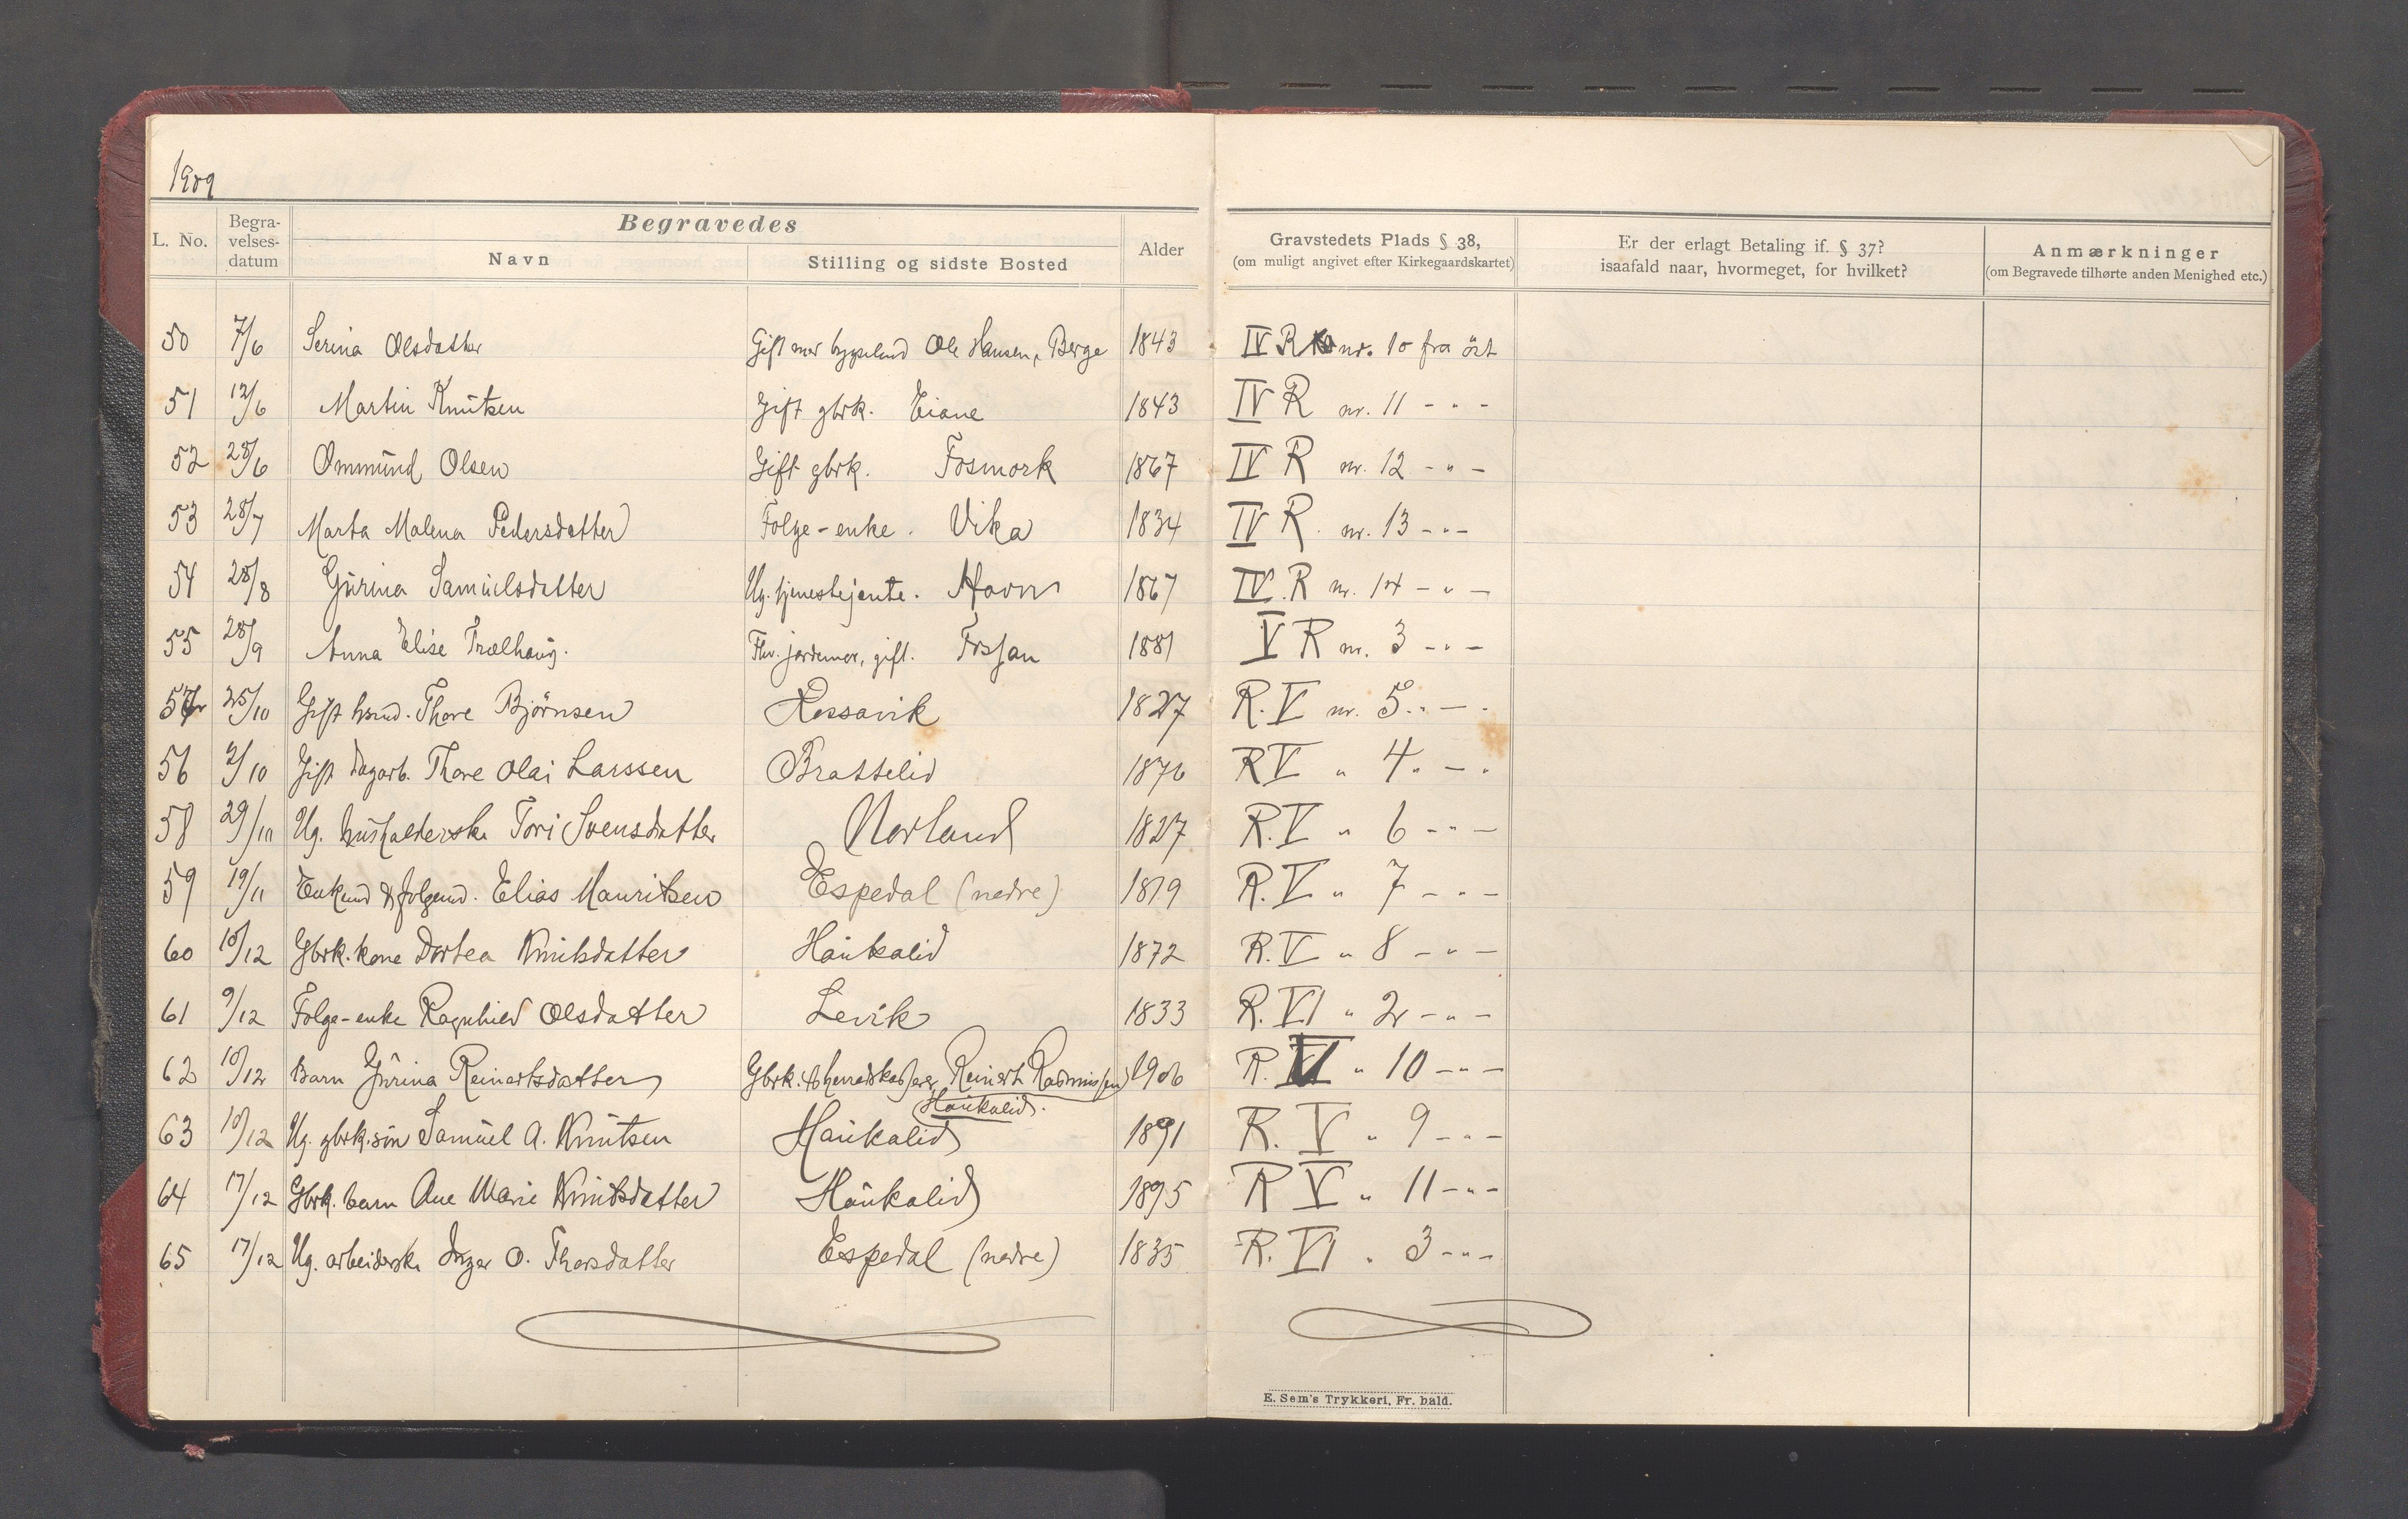 1909
Begravedes
L. No. Begra-velses-datum Navn Stilling og sidste Bosted Alder Gravstedets Plads § 38, (om muligt angivet efter Kirkegaardskartet) Er der erlagt Betaling if. § 37? isaafald naar, hvormeget, for hvilket? Anmærkninger (om Begravede tilhørte anden Menighed etc.)
50 7/6 Serina Olsdatter Gift med Ole Hansen, Berge 1843 IV R nr. 10 fra öst
51 12/6 Martin Knutsen Gift gbrk. Eiane 1843 IV R nr. 11 - " -
52 25/6 Ommund Olsen Gift gbrk. Fosmork 1867 IV R nr. 12 - " -
53 28/7 Marta Malena Pedersdatter Folge-enke. Vika 1834 IV R. nr. 13 - " -
54 28/8 Gurina Samuelsdatter Ug. tjenestejente. Havn 1867 IV. R nr. 14 - " -
55 28/9 Anna Elise Trælhaug. Fhv. jordemor, gift. Fossan 1881 V R nr. 3 - " -
57 25/10 Gift hsmd. Thore Björnsen Rossavik 1827 R. V nr. 5. " - .
56 2/10 Gift dagarb. Thore Olai Larssen Brattelid 1876 R V " 4 " - "
58 29/10 Ug. husholderske Tori Svensdatter Norland 1827 R. V " 6 - " -
59 19/11 Enkemd & folgemd. Elias Mauritsen Espedal (nedre) 1819 R. V " 7 - " -
60 10/12 Gbrk. kone Dortea Knutsdatter Haukalid 1872 R. V " 8 - " -
61 9/12 Folge-enke Ragnhild Olsdatter Levik 1833 R. VI " 2 - " -
62 10/12 Barn Gurina Reinertsdatter Gbrk. & herredskasserer Reinert Rasmussen 1906 R. VI " 10 - " -
Haukalid.
63 10/12 Ug. gbrk. sön Samuel A. Knutsen Haukalid 1891 R. V " 9 - " -
64 17/12 Gbrk. barn Ane Marie Knutsdatter Haukalid 1895 R V " 11 - " -
65 17/12 Ug. arbeiderske Inger O. Thorsdatter Espedal (nedre) 1835 R. VI " 3 - " -
E. Sem's Trykkeri, Fr. hald.